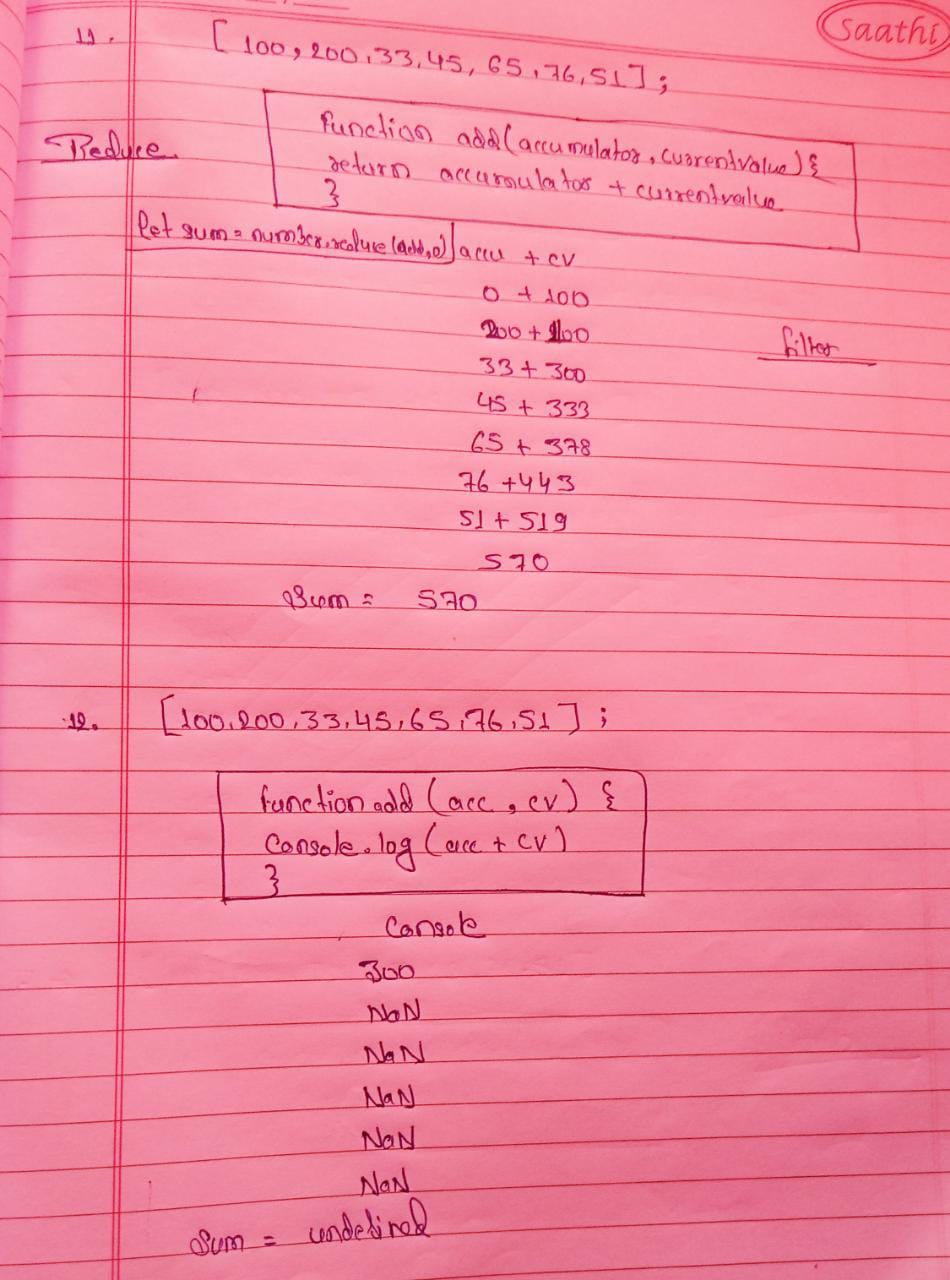 Saathi
11. [100, 200, 33, 45, 65, 76, 51];
Reduce
function add(accumulator, currentvalue) {
return accumulator + currentvalue
}
let sum = number.reduce(add, 0) accu + cv
0 + 100
200 + 100
33 + 300
filter
45 + 333
65 + 378
76 + 443
51 + 519
570
Sum = 570
12. [100, 200, 33, 45, 65, 76, 51];
function add (acc, cv) {
Console.log (acc + cv)
}
Console
300
NaN
NaN
NaN
NaN
NaN
Sum = undefined